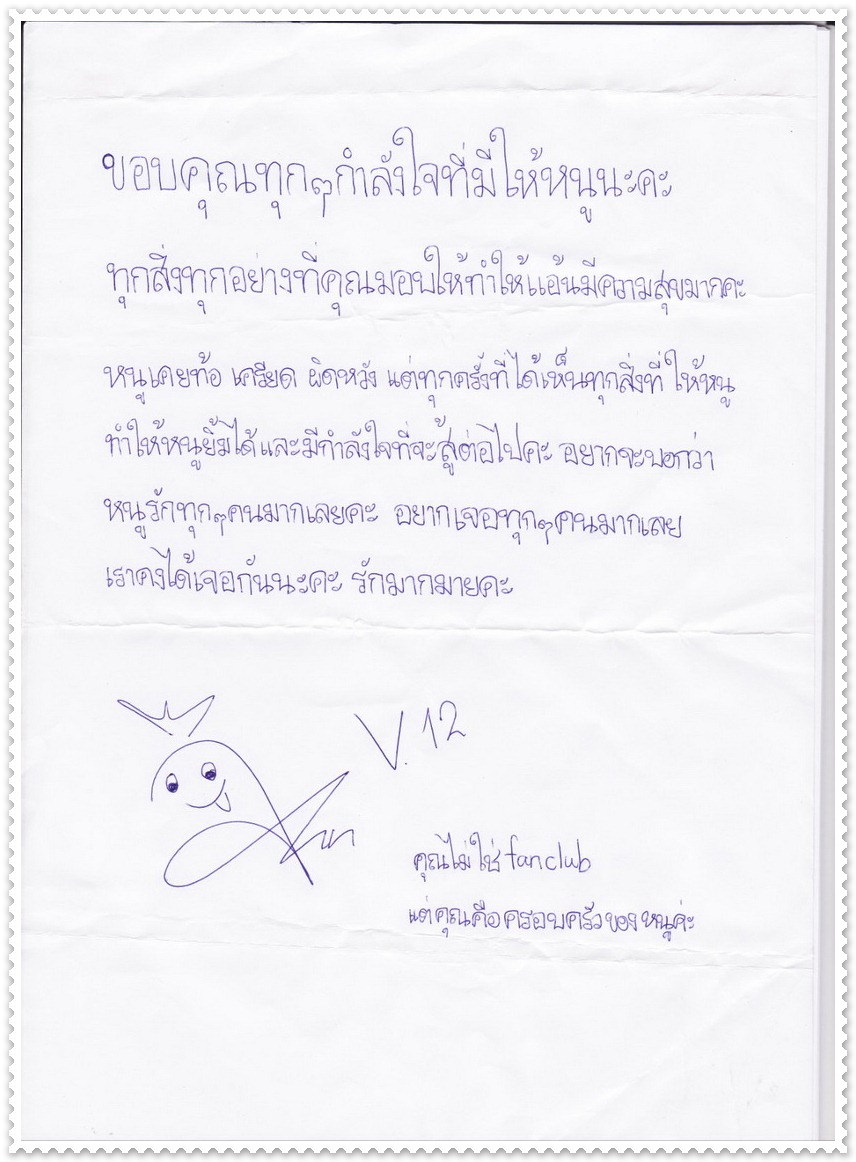 ขอบคุณทุกๆกำลังใจที่มีให้หนูนะคะ
ทุกสิ่งทุกอย่างที่คุณมอบให้ทำให้แอ้นมีความสุขมากคะ
หนูเคยท้อ เครียด ผิดหวัง แต่ทุกครั้งที่ได้เห็นทุกสิ่งที่ ให้หนู
ทำให้หนูยิ้มได้และมีกำลังใจที่จะสู้ต่อไปคะ อยากจะบอกว่า
หนูรักทุกๆคนมากเลยคะ อยากเจอทุกๆคนมากเลย
เราคงได้เจอกันนะคะ รักมากมายคะ
V.12
คุณไม่ใช่ fanclub
แต่คุณคือครอบครัวของหนูค่ะ